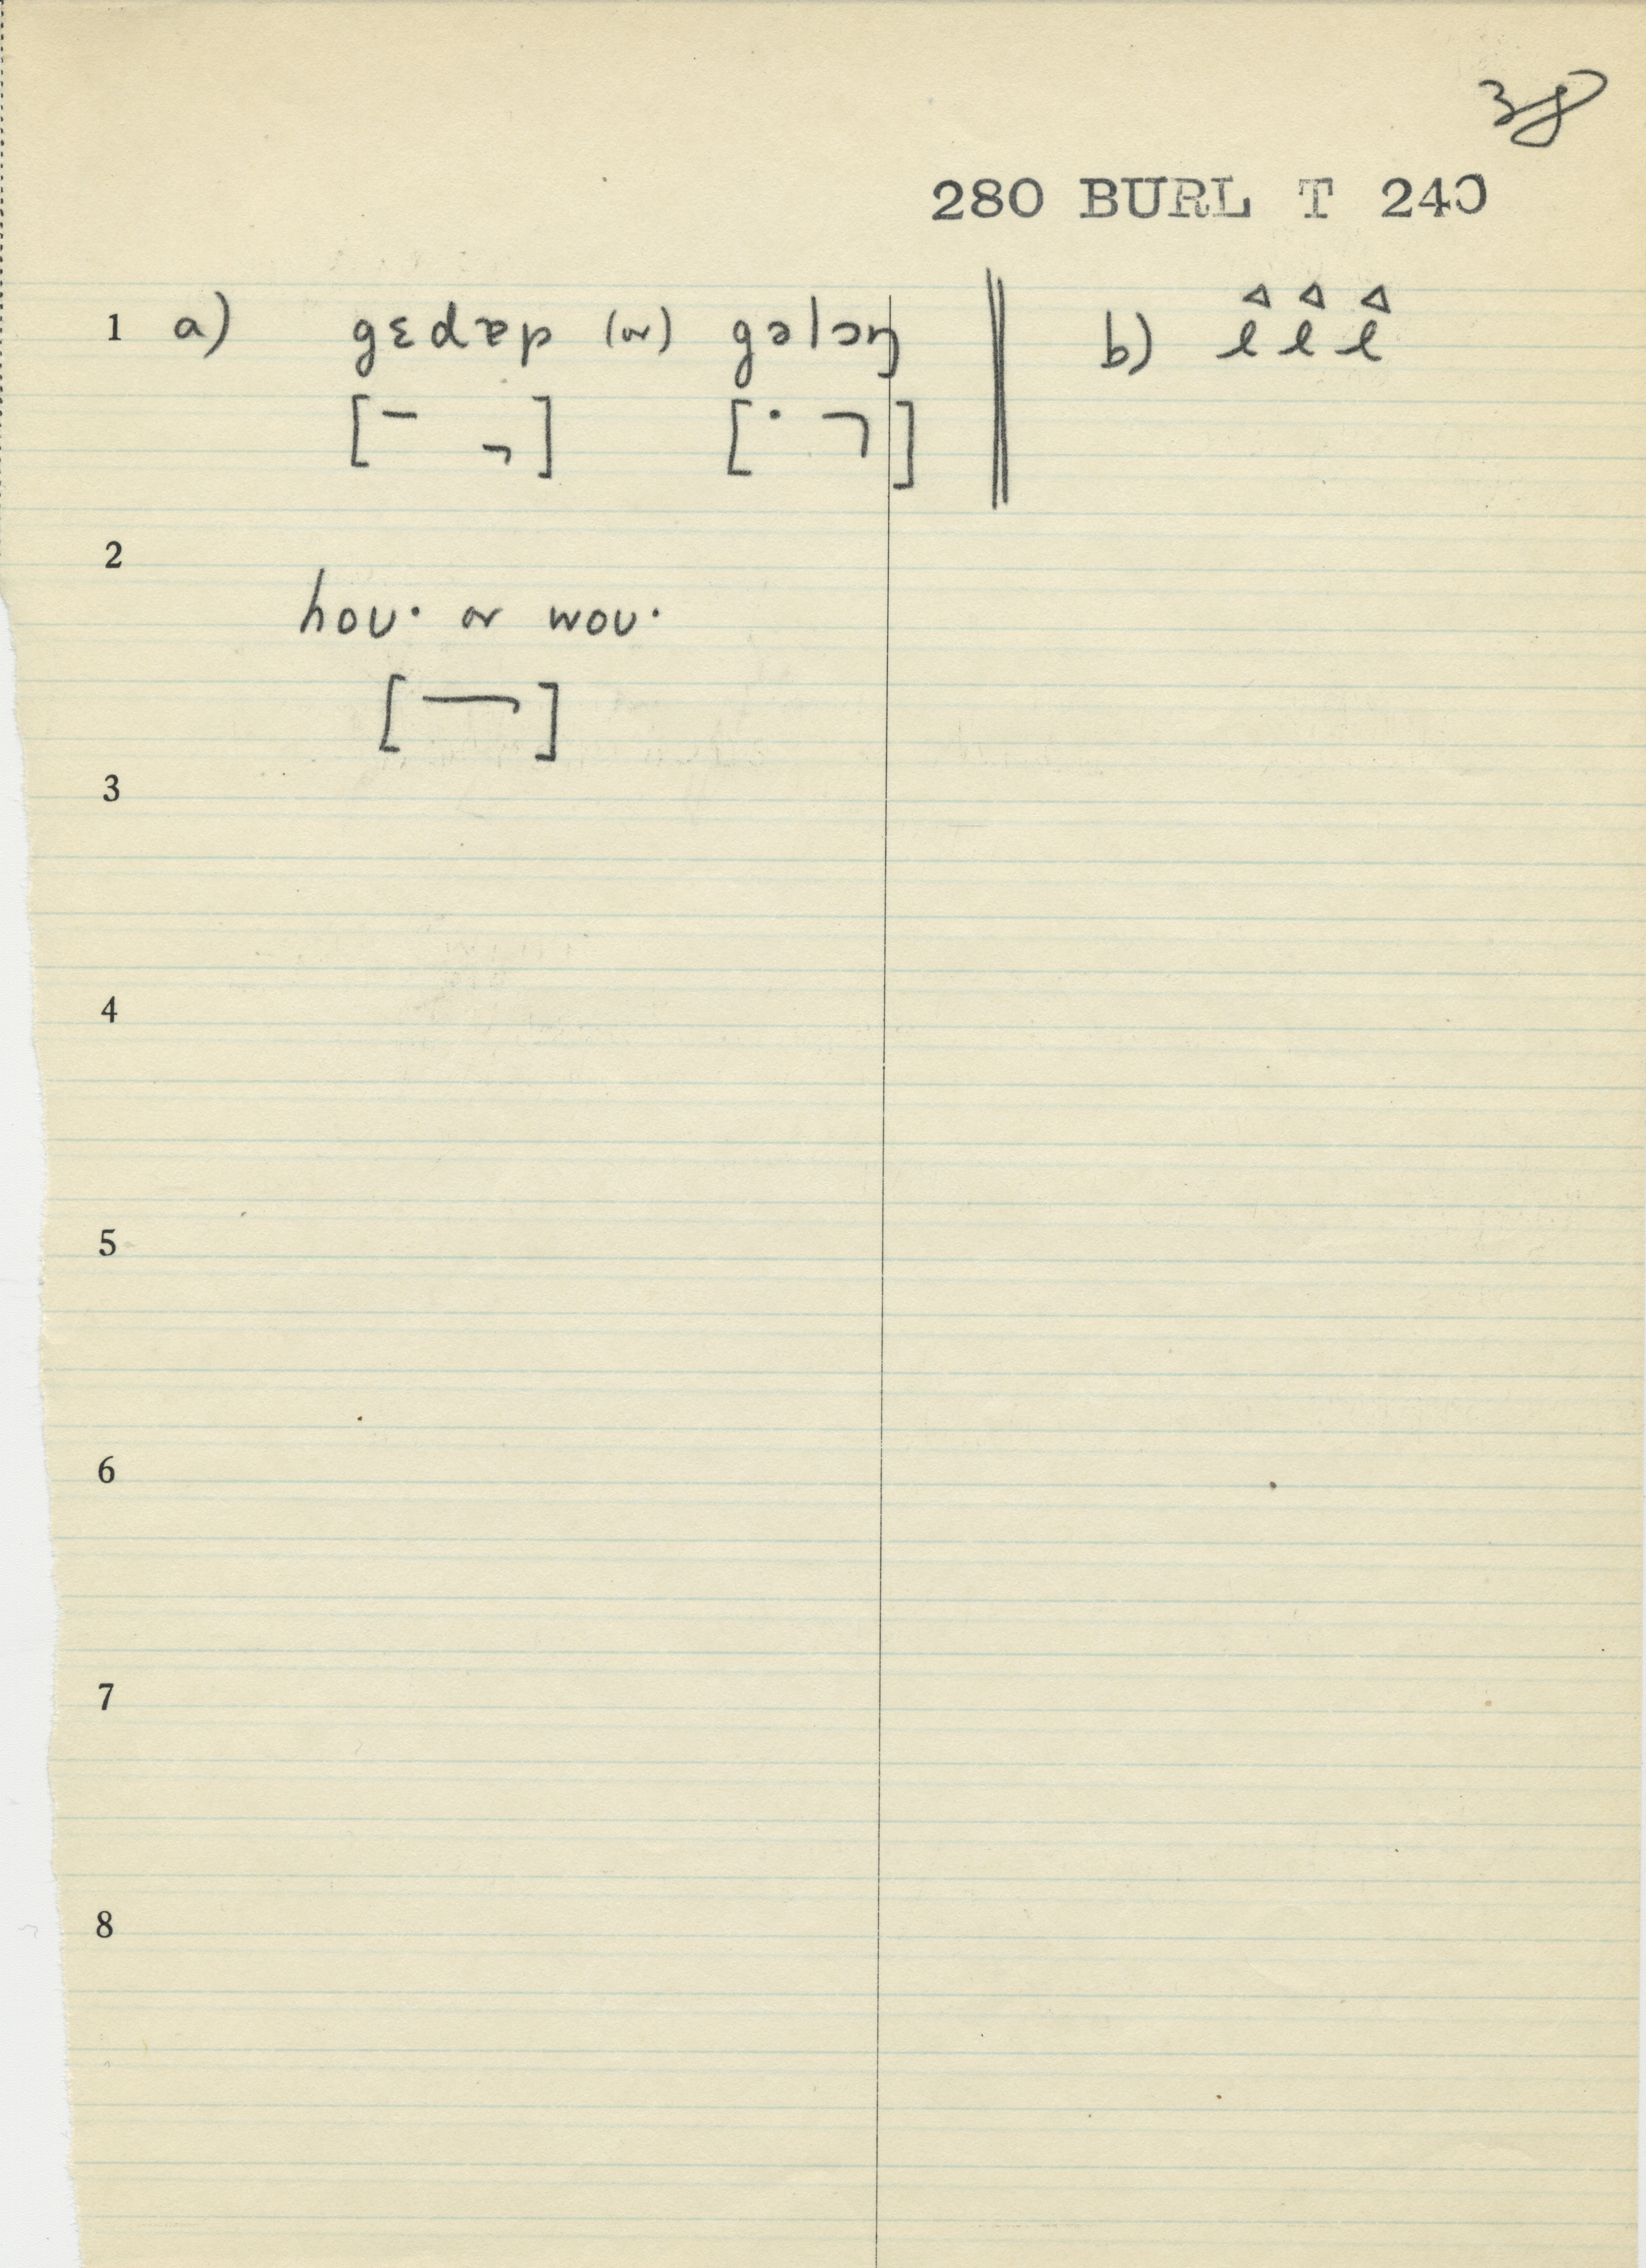 38
280 BURL T 240
1 a) gɛdɐp (or) gəlɔŋ b) l l l
2
hoʋ· or woʋ·
3
4
5
6
7
8